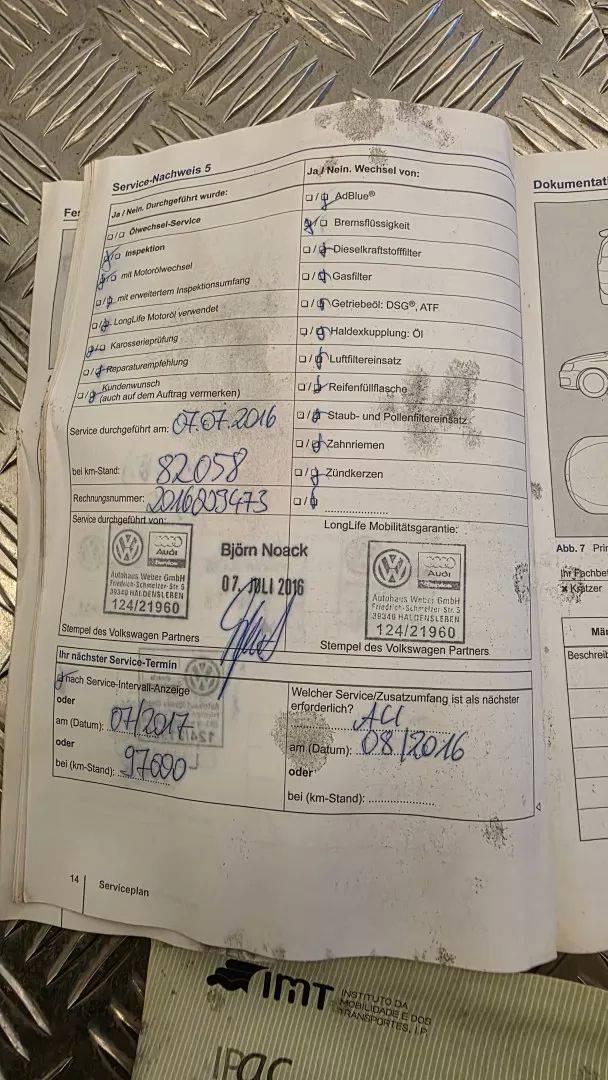 Service-Nachweis 5
Ja / Nein. Durchgeführt wurde:
☐/☐ Ölwechsel-Service
☐/☐ Inspektion
☐/☐ mit Motorölwechsel
☐/☐ mit erweitertem Inspektionsumfang
☐/☐ LongLife Motoröl verwendet
☐/☐ Karosserieprüfung
☐/☐ Reparaturempfehlung
☐/☐ Kundenwunsch
(auch auf dem Auftrag vermerken)
Service durchgeführt am: 07.07.2016
bei km-Stand: 82058
Rechnungsnummer: 2016209473
Ja / Nein. Wechsel von:
☐/☐ AdBlue®
☐/☐ Bremsflüssigkeit
☐/☐ Dieselkraftstofffilter
☐/☐ Gasfilter
☐/☐ Getriebeöl: DSG®, ATF
☐/☐ Haldexkupplung: Öl
☐/☐ Luftfiltereinsatz
☐/☐ Reifenfüllflasche
☐/☐ Staub- und Pollenfiltereinsatz
☐/☐ Zahnriemen
☐/☐ Zündkerzen
☐/☐ ....................
Service durchgeführt von:
Audi
Service
Autohaus Weber GmbH
Friedrich-Schmelzer-Str. 5
39340 HALDENSLEBEN
124/21960
Björn Noack
07. JULI 2016
Stempel des Volkswagen Partners
LongLife Mobilitätsgarantie:
Audi
Service
Autohaus Weber GmbH
Friedrich-Schmelzer-Str. 5
39340 HALDENSLEBEN
124/21960
Stempel des Volkswagen Partners
Ihr nächster Service-Termin
☐ nach Service-Intervall-Anzeige
oder
am (Datum): 07/2017
oder
bei (km-Stand): 97600
Welcher Service/Zusatzumfang ist als nächster
erforderlich?
AU
am (Datum): 08/2016
oder
bei (km-Stand): ....................
14 Serviceplan
Dokumentati
Abb. 7 Prin
Ihr Fachbet
Kratzer
Män
Beschreib
IMT INSTITUTO DA
MOBILIDADE E DOS
TRANSPORTES, I.P.